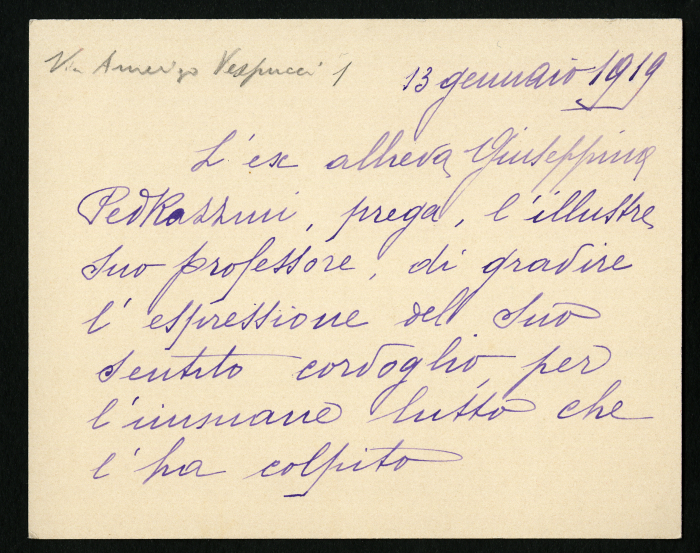 Via Amerigo Vespucci 1
13 gennaio 1919
L'ex allieva Giuseppina
Pedrazzini, prega, l'illustre
suo professore, di gradire
l'espressione del suo
sentito cordoglio per
l'immane lutto che
l'ha colpito